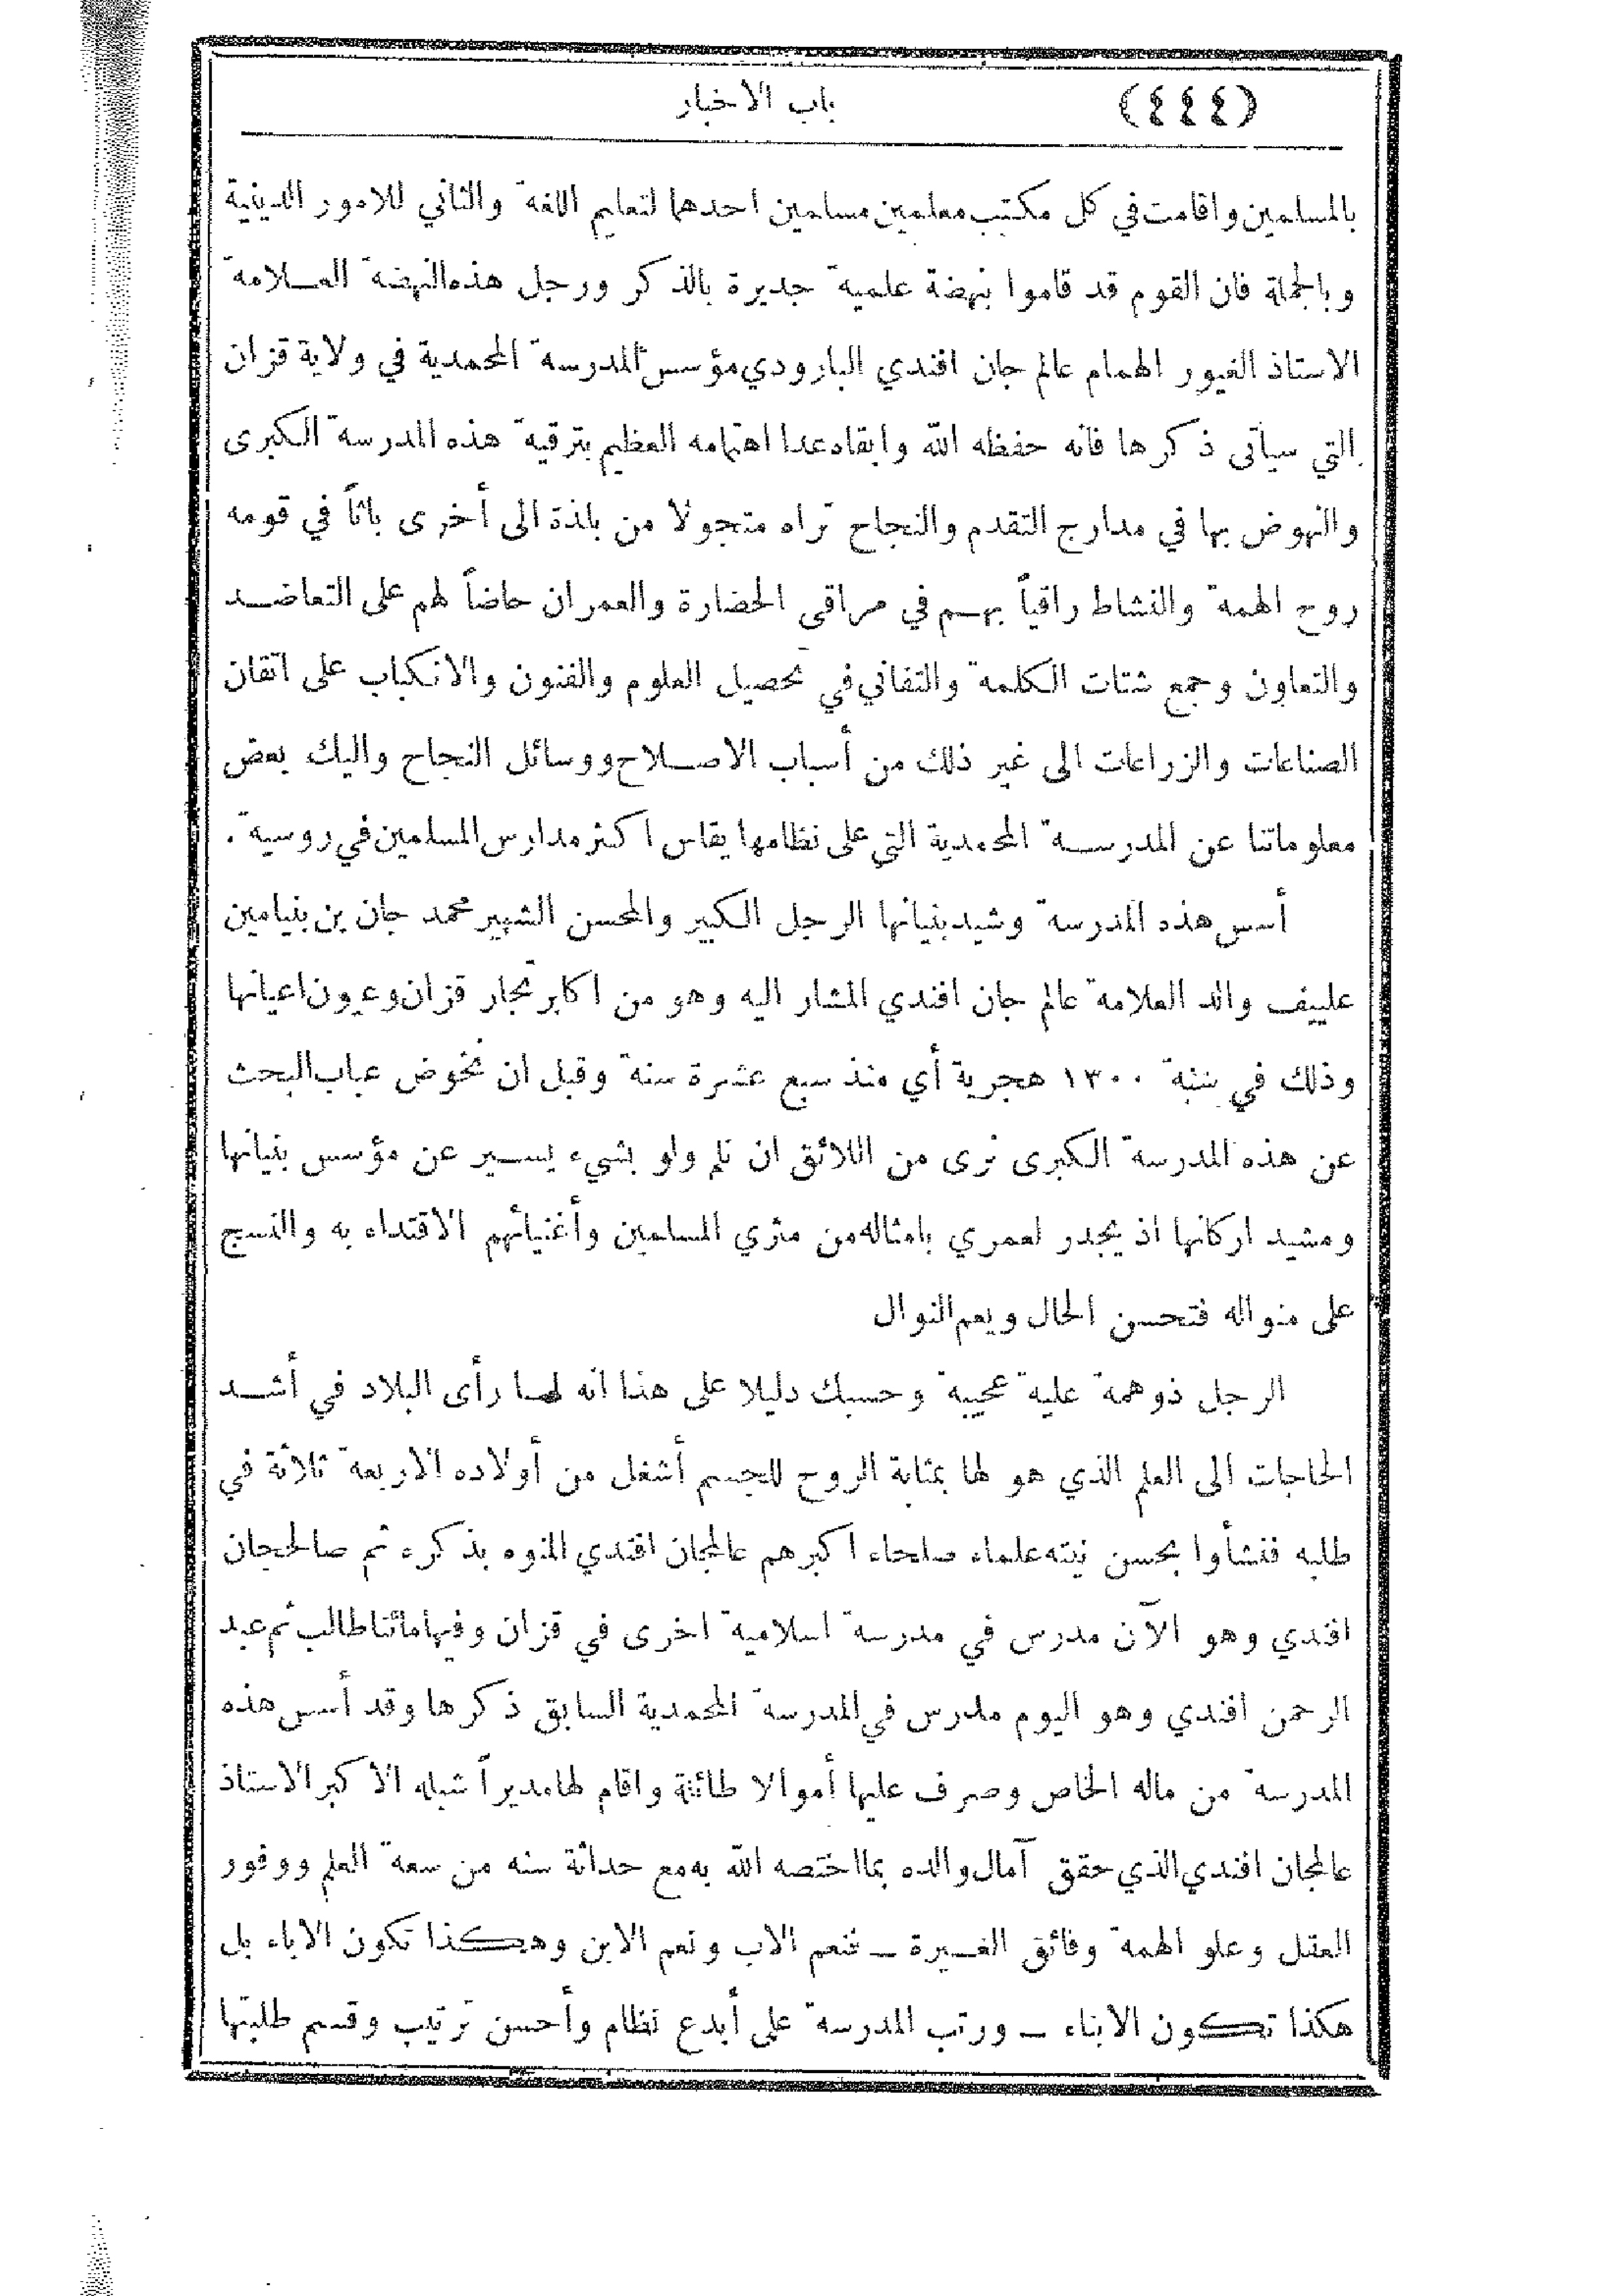 (٤٤٤) باب الاخبار
بالمسلمين واقامت في كل مكتب معلمين مسلمين احدهما لتعليم اللغة والثاني للامور الدينية
وبالجملة فان القوم قد قاموا بنهضة علمية جديرة بالذكر ورجل هذه النهضة العلامة
الاستاذ الغيور الهمام عالم جان افندي البارودي مؤسس المدرسة المحمدية في ولاية قزان
التي سيأتى ذكرها فانه حفظه الله وابقاه عدا اهتمامه العظيم بترقية هذه المدرسة الكبرى
والنهوض بها في مدارج التقدم والنجاح تراه متجولا من بلدة الى أخرى باثاً في قومه
روح الهمة والنشاط راقياً بهم في مراقى الحضارة والعمران حاضاً لهم على التعاضد
والتعاون وجمع شتات الكلمة والتفاني في تحصيل العلوم والفنون والانكباب على اتقان
الصناعات والزراعات الى غير ذلك من أسباب الاصلاح ووسائل النجاح واليك بعض
معلوماتنا عن المدرسة المحمدية التي على نظامها يقاس اكثر مدارس المسلمين في روسية .
أسس هذه المدرسة وشيد بنيانها الرجل الكبير والمحسن الشهير محمد جان بن بنيامين
علييف والد العلامة عالم جان افندي المشار اليه وهو من اكابر تجار قزان وعيون اعيانها
وذلك في سنة ١٣٠٠ هجرية أي منذ سبع عشرة سنة وقبل ان نخوض عباب البحث
عن هذه المدرسة الكبرى نرى من اللائق ان نلم ولو بشيء يسير عن مؤسس بنيانها
ومشيد اركانها اذ يجدر لعمري بامثاله من مثري المسلمين وأغنيائهم الاقتداء به والنسج
على منواله فتحسن الحال ويعم النوال
الرجل ذو همة علية عجيبة وحسبك دليلا على هذا انه لما رأى البلاد في أشد
الحاجات الى العلم الذي هو لها بمثابة الروح للجسم أشغل من أولاده الاربعة ثلاثة في
طلبه فنشأوا بحسن نيته علماء صلحاء اكبرهم عالمجان افندي المنوه بذكره ثم صالحجان
افندي وهو الآن مدرس في مدرسة اسلامية اخرى في قزان وفيها مائتا طالب ثم عبد
الرحمن افندي وهو اليوم مدرس في المدرسة المحمدية السابق ذكرها وقد أسس هذه
المدرسة من ماله الخاص وصرف عليها أموالا طائلة واقام لها مديراً شبله الاكبر الاستاذ
عالمجان افندي الذي حقق آمال والده بما اختصه الله به مع حداثة سنه من سعة العلم ووفور
العقل وعلو الهمة وفائق الغيرة ــ فنعم الاب ونعم الابن وهكذا تكون الاباء بل
هكذا تكون الابناء ــ ورتب المدرسة على أبدع نظام وأحسن ترتيب وقسم طلبتها